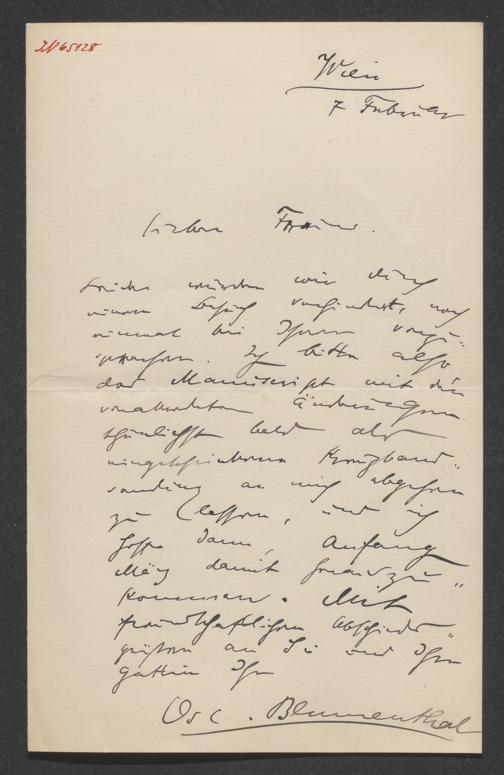 IN 65128
Wien
7 Februar
Lieber Freund.
Leider wurden wir durch
einen Besuch verhindert, noch
einmal bei Ihnen vorzu-
sprechen. Ich bitte also
das Manuscript mit den
verabredeten Änderungen
thunlichst bald als
eingeschriebene Kreuzband-
sendung an mich abgehen
zu lassen, und ich
hoffe dann, Anfang
März damit herauszu-
kommen. Mit
freundschaftlichen Abschieds-
grüßen an Sie und Ihre
Gattin Ihr
Osc. Blumenthal